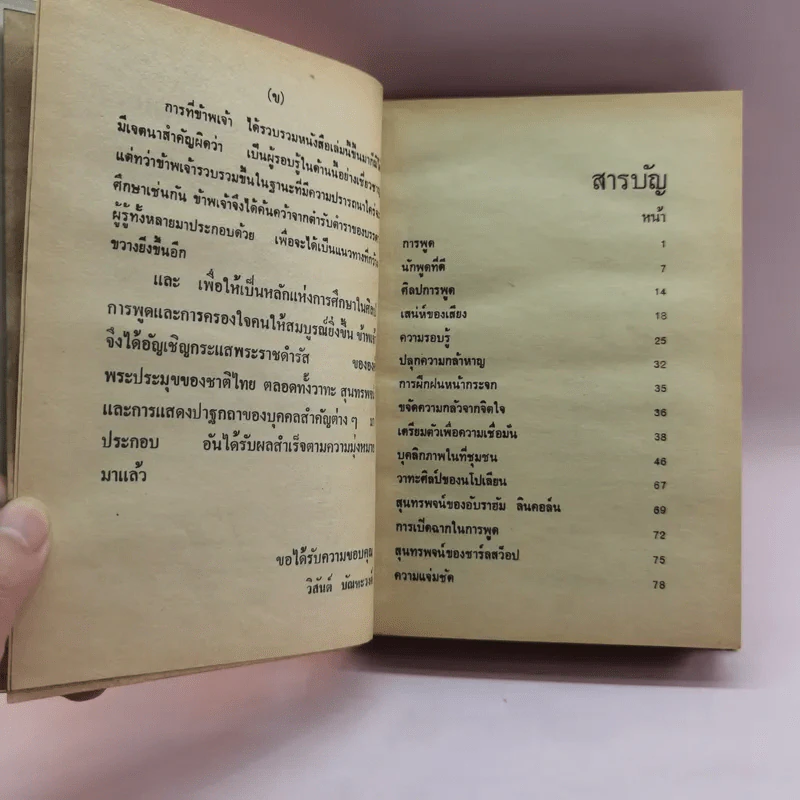 (ข)
การที่ข้าพเจ้า ได้รวบรวมหนังสือเล่มนี้ขึ้นมาก็มิได้
มีเจตนาสำคัญผิดว่า เป็นผู้รอบรู้ในด้านนี้อย่างเชี่ยวชาญ
แต่ทว่าข้าพเจ้ารวบรวมขึ้นในฐานะที่มีความปรารถนาใคร่จะ
ศึกษาเช่นกัน ข้าพเจ้าจึงได้ค้นคว้าจากตำรับตำราของบรรดา
ผู้รู้ทั้งหลายมาประกอบด้วย เพื่อจะได้เป็นแนวทางที่กว้าง
ขวางยิ่งขึ้นอีก
และ เพื่อให้เป็นหลักแห่งการศึกษาในศิลป
การพูดและการครองใจคนให้สมบูรณ์ยิ่งขึ้น ข้าพเจ้า
จึงได้อัญเชิญกระแสพระราชดำรัส ขององค์
พระประมุขของชาติไทย ตลอดทั้งวาทะ สุนทรพจน์
และการแสดงปาฐกถาของบุคคลสำคัญต่าง ๆ มา
ประกอบ อันได้รับผลสำเร็จตามความมุ่งหมาย
มาแล้ว
ขอได้รับความขอบคุณ
วิสันต์
สารบัญ
หน้า
การพูด 1
นักพูดที่ดี 7
ศิลปการพูด 14
เสน่ห์ของเสียง 18
ความรอบรู้ 25
ปลุกความกล้าหาญ 32
การฝึกฝนหน้ากระจก 35
ขจัดความกลัวจากจิตใจ 36
เตรียมตัวเพื่อความเชื่อมั่น 38
บุคลิกภาพในที่ชุมชน 46
วาทะศิลป์ของนโปเลียน 67
สุนทรพจน์ของอับราฮัม ลินคอล์น 69
การเบิดฉากในการพูด 72
สุนทรพจน์ของชาร์ลสว็อป 75
ความแจ่มชัด 78